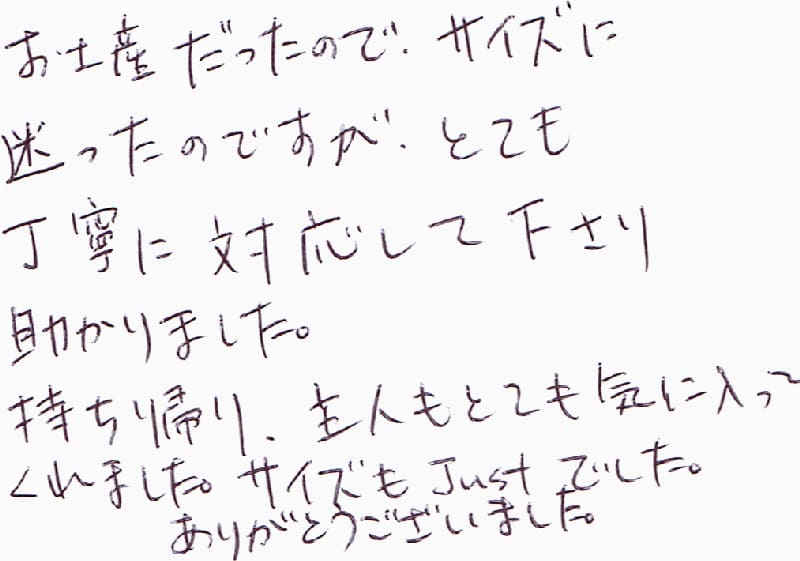 お土産だったので、サイズに
迷ったのですが、とても
丁寧に対応して下さり
助かりました。
持ち帰り、主人もとても気に入って
くれました。サイズもJustでした。
ありがとうございました。